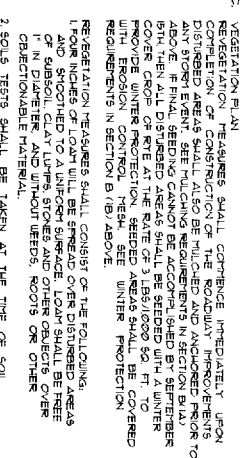 C. VEGETATION PLAN
REVEGETATION MEASURES SHALL COMMENCE IMMEDIATELY UPON
COMPLETION OF CONSTRUCTION OF THE ROADWAY IMPROVEMENTS.
DISTURBED AREAS SHALL ALSO BE MULCHED AND ANCHORED PRIOR TO
ANY STORM EVENT. SEE MULCHING REQUIREMENTS IN SECTION B(4)
ABOVE. IF FINAL SEEDING CANNOT BE ACCOMPLISHED BY SEPTEMBER
15TH, THEN ALL DISTURBED AREAS SHALL BE SEEDED WITH A WINTER
COVER CROP OF RYE AT THE RATE OF 3 LBS/1000 SQ. FT. TO
PROVIDE WINTER PROTECTION. SEEDED AREAS SHALL BE COVERED
WITH EROSION CONTROL MESH. SEE WINTER PROTECTION
REQUIREMENTS IN SECTION B (1B) ABOVE.
REVEGETATION MEASURES SHALL CONSIST OF THE FOLLOWING:
1. FOUR INCHES OF LOAM WILL BE SPREAD OVER DISTURBED AREAS
AND SMOOTHED TO A UNIFORM SURFACE. LOAM SHALL BE FREE
OF SUBSOIL, CLAY LUMPS, STONES AND OTHER OBJECTS OVER
1" IN DIAMETER, AND WITHOUT WEEDS, ROOTS OR OTHER
OBJECTIONABLE MATERIAL.
2. SOILS TESTS SHALL BE TAKEN AT THE TIME OF SOIL